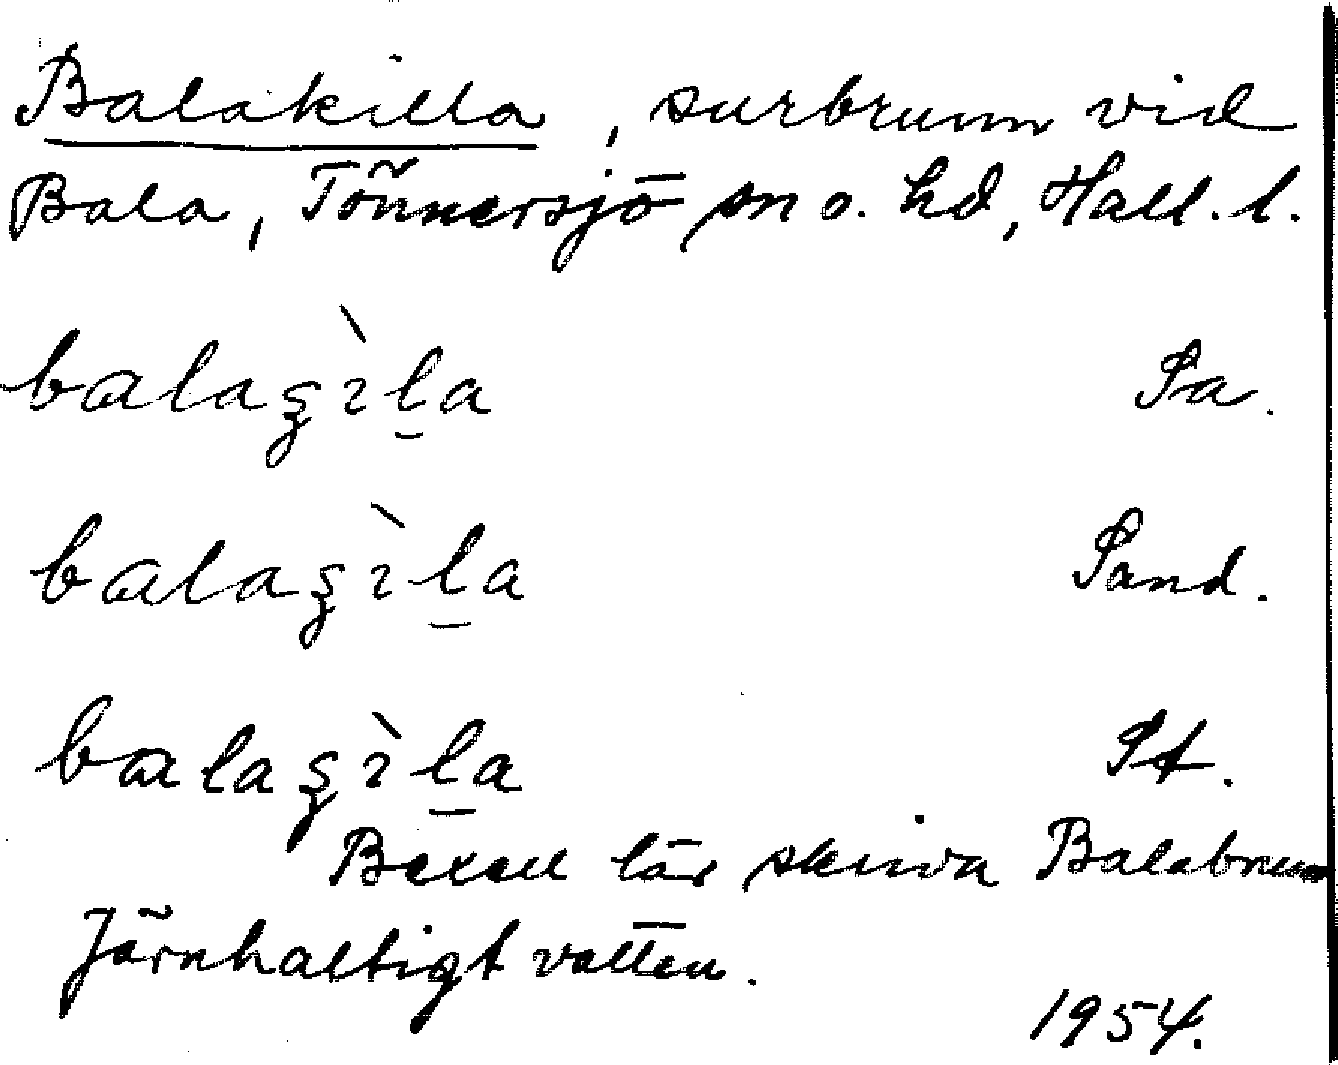 Balakilla, surbrunn vid
Bala, Tönnersjö sn o. hd, Hall. l.
balaʂìḷa Sa.
balaʂìḷa Sand.
balaʂìḷa St.
Bexell lär skriva Balabrunn
Järnhaltigt vatten.
1954.